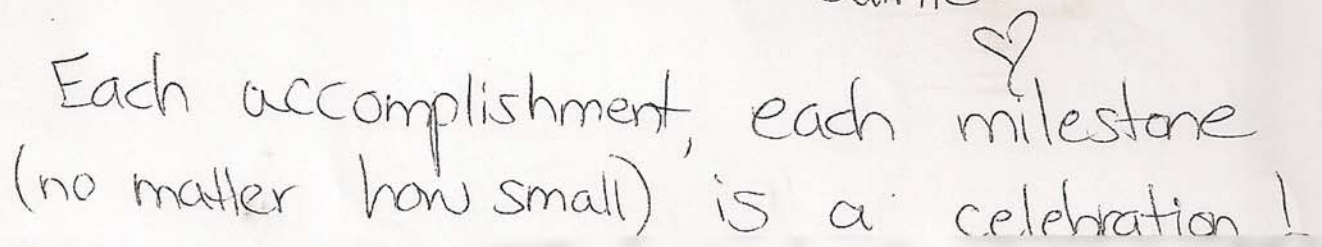 Each accomplishment, each milestone
(no matter how small) is a celebration!